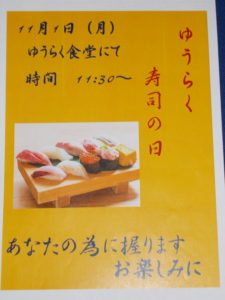 ゆうらく
寿司の日
11月1日(月)
ゆうらく食堂にて
時間 11:30～
あなたの為に握ります
お楽しみに